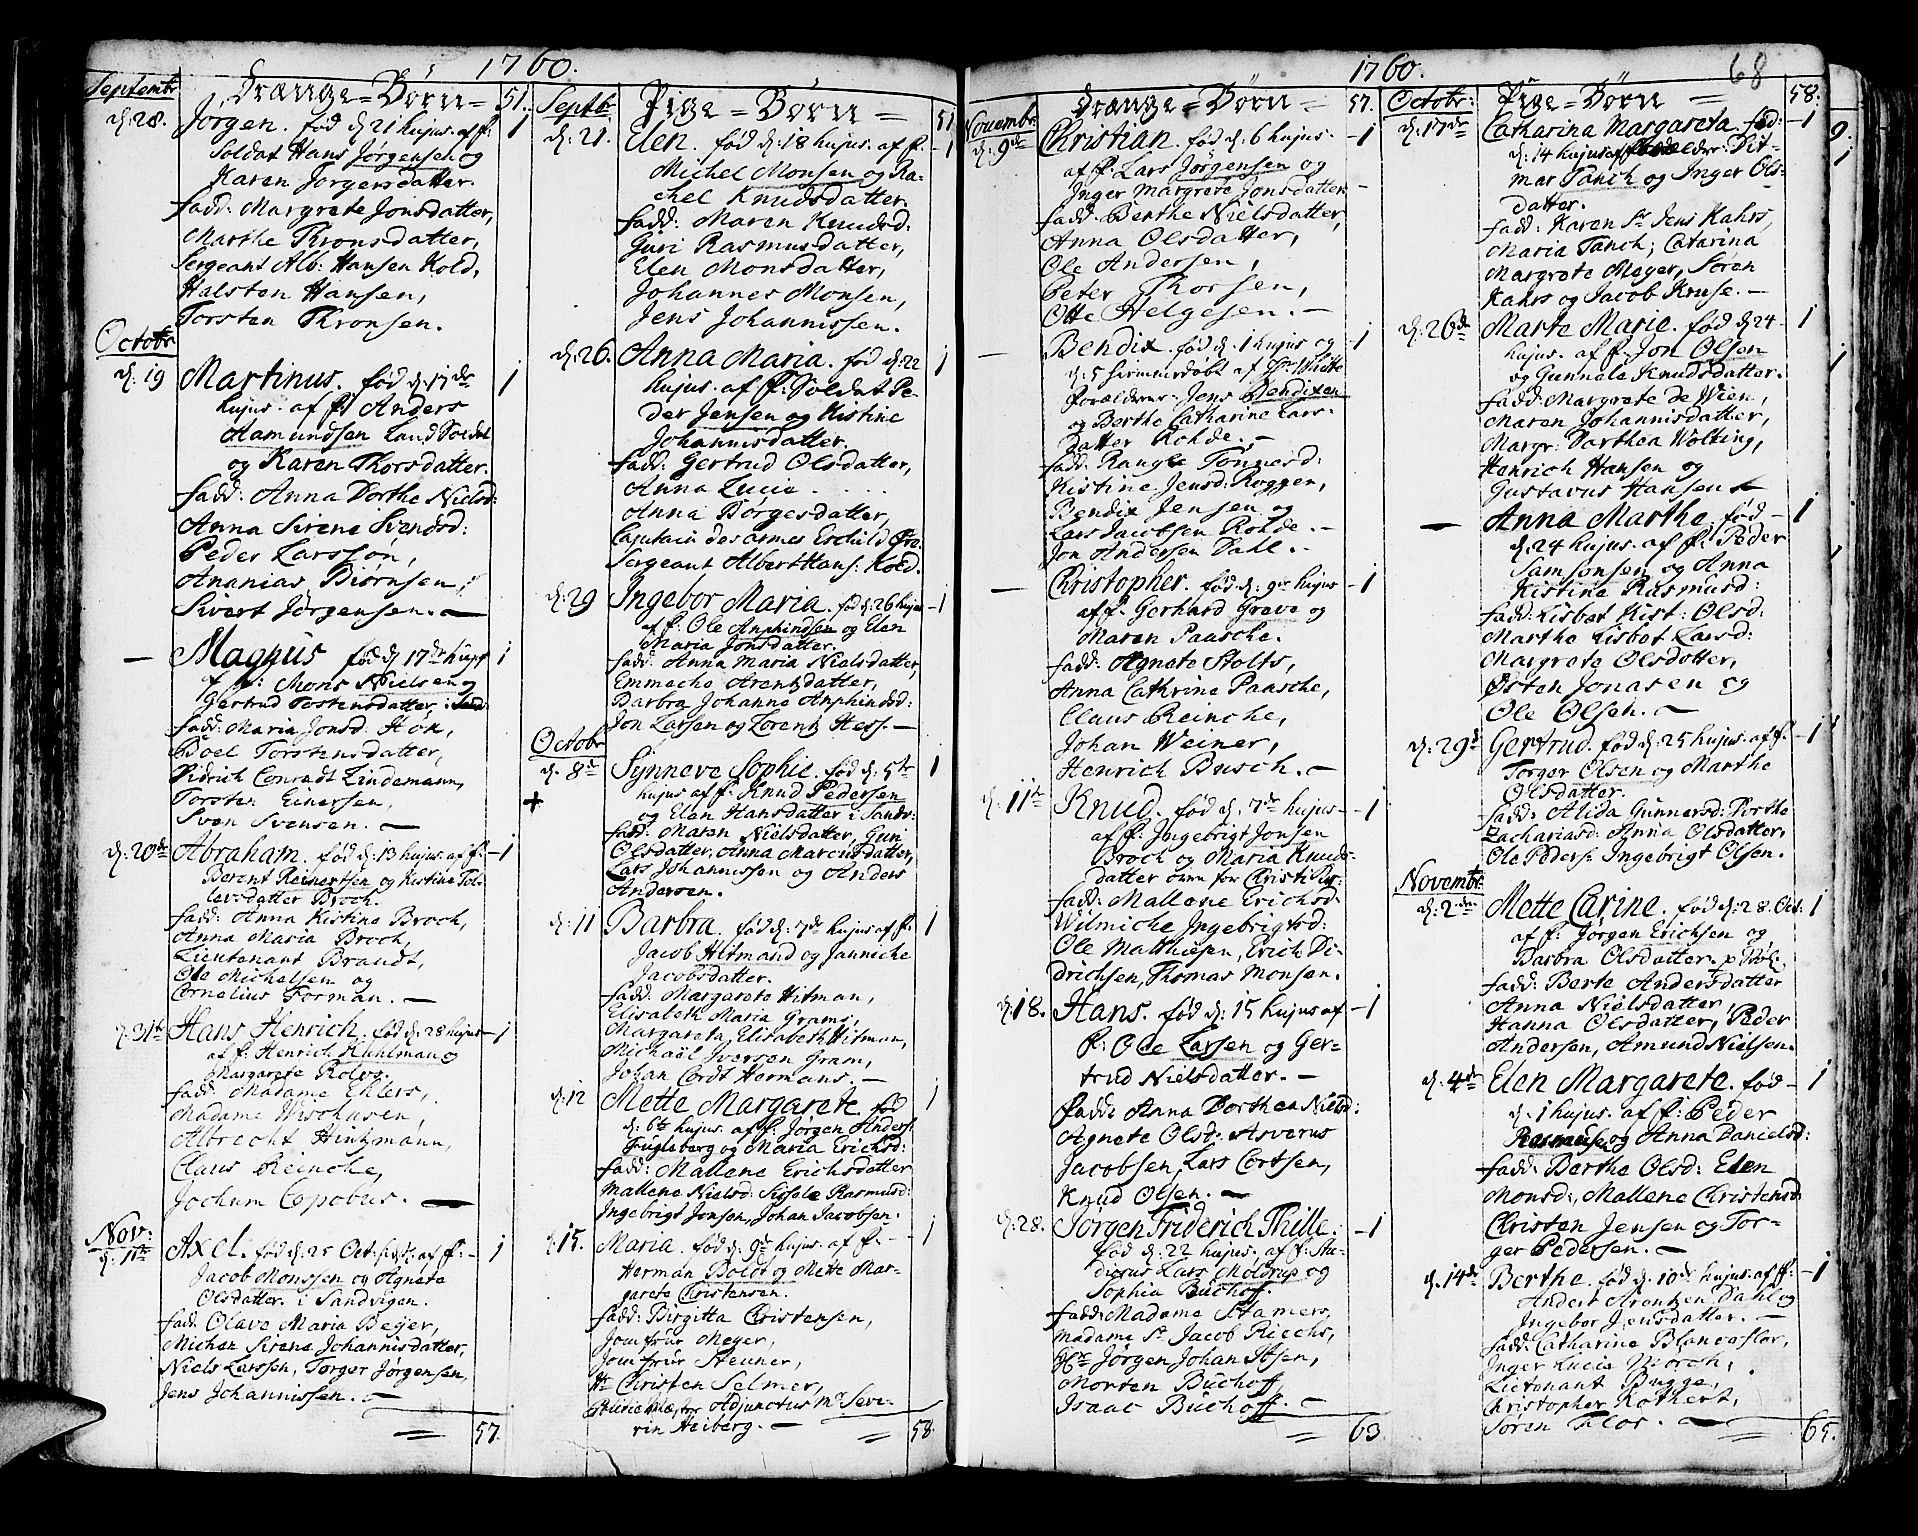 1760.
Septembr
Drænge = Børn =
51.
d: 28.
Jörgen. fød d: 21 hujus. af f:
1
Soldat Hans Jørgensen og
Karen Jørgensdatter.
fadd: Margrete Jonsdatter,
Marthe Tronsdatter,
Sergeant Alb: Hansen Kold,
Halsten Hansen,
Torsten Tronsen.
Octobr
d: 19
Martinus. fød d: 17de
1
hujus. af f: Anders
Aamundsen Land Soldat
og Karen Thorsdatter.
fadd: Anna Dorthe Nielsd:
Anna Sirene Svendsd:
Peder Larsson,
Ananias Biørnsen,
Sivert Jørgensen. —
—
Magnus fød d: 17de hujus
1
af f: Mons Nielsen og
Gertrud Tostensdatter i Sand:
fadd: Maria Jonsd: Høk,
Boel Torstensdatter,
Didrich Conradt Lindemann,
Torsten Einersen,
Sven Svensen. —
d: 20de
Abraham. fød d: 13 hujus. af f:
— 1
Berent Reinertsen og Kistine Tol-
levsdatter Broch.
fadd: Anna Kistina Broch,
Anna Maria Broch,
Lieutenant Brandt,
Ole Michelsen og
Cornelius Forman. —
d: 31te
Hans Henrich. fød d: 28 hujus
— 1
af f: Henrich Kuhlman og
Margarete Rolvs.
fadd: Madame Ehlers,
Madame Wischusen,
Albrecht Hintzmann,
Claus Reincke,
Jochum Copobus. —
Nov:
d: 11te
Axel. fød d: 25 Oct: af f:
— 1
Jacob Monssen og Agnete
Olsdatter. i Sandvigen.
fadd: Olave Maria Bejer,
Michen Sirene Johannisdatter,
Niels Larssen, Torger Jørgensen,
Jens Johannissen. —
= 57.
Septbr
Pige = Børn =
51
d: 21.
Elen. fød d: 18 hujus. af f.
— 1
Michel Monsen og Ra-
chel Knudsdatter.
fadd: Maren Knudsd:
Guri Rasmusdatter,
Elen Monsdatter,
Johannes Monsen,
Jens Johannissen.
d: 26.
Anna Maria. fød d: 22
1
hujus. af f: Soldat Pe-
der Jensen og Kistine
Johannisdatter.
fadd: Gertrud Olsdatter,
Anna Lucie . . . .
Anna Børgesdatter,
Captain des armes Eschild
Sergeant Albert Hans: Kold.
d: 29
Ingebor Maria. fød d: 26 hujus
— 1
af f: Ole Anphindsen og Elen
Maria Jonsdatter.
fadd: Anna Maria Nielsdatter,
Emmeche Arentzdatter,
Barbra Johanne Anphindsd:
Jon Larsen og Lorentz Hess. —
Octobr
d. 8de
Synneve Sophie. fød d: 5te
1
+
hujus af f: Knud Pedersen
og Elen Hansdatter i Sandv:
fadd: Maren Nielsdatter, Guri
Olsdatter, Anna Marcusdatter,
Lars Johannissen og Anders
Andersen.
d: 11
Barbra. fød d: 7de hujus af f.
1
Jacob Hitmand og Janniche
Jacobsdatter.
fadd: Margarete Hitman,
Elisabeth Maria Grams,
Margareta Elisabeth Hitman,
Michaël Iversen Gram,
Johan Cordt Hermans. —
d: 12
Mette Margarete. fød
1
d: 6te hujus. af f: Jørgen Anders:
Fugleberg og Maria Erichsd:
fadd: Mallene Erichsdatter
Mallene Nielsd: Sissele Rasmusd:
Ingebrigt Jonsen, Johan Jacobsen.
d: 15.
Maria. fød d: 9de hujus. af f. —
1
Herman Boldt og Mette Mar-
garete Christensen.
fadd: Birgitta Christensen,
Jomfrur Meyer,
Jomfrur Steuner,
Hr Christen Selmer,
Adjunctus Mr Seve-
rin Heiberg. —
= 58.
1760.
68
Novembr
Drænge = Børn =
57.
d: 9de
Christian. fød d: 6 hujus.
— 1
af f: Lars Jørgensen og
Inger Margrete Jonsdatter —
fadd: Berthe Nielsdatter,
Anna Olsdatter,
Ole Andersen,
Peter Thorsen,
Otte Helgesen. —
—
Bendix. fød d: 1 hujus og
— 1
d: 5 hiemmedøbt af Hr Witte
Forældrene Jens Bendixen
og Berthe Catharine Lars-
datter Rohde. —
fadd: Rangle Tønnesd:
Kistine Jensd: Roggen,
Bendix Jensen og
Lars Jacobsen Rohde. —
Jon Andersen Dahl. —
—
Christopher. fød d: 9de hujus
— 1
af f. Gerhard Greve og
Maren Paasche.
fadd: Agnete Stolts,
Anna Cathrine Paasche,
Claus Reincke,
Johan Weiner,
Henrich Busch. —
d: 11te
Knud. fød d: 7de hujus
— 1
af f: Ingebrigt Jonsen
Broch og Maria Knuds-
datter
fadd: Mallene Erichsd:
Wilmiche Ingebrigtsd:
Ole Matthiesen, Erich Di-
drichsen, Thomas Monsen.
d: 18.
Hans. fød d: 15 hujus af
— 1
f: Ole Larsen og Ger-
trud Nielsdatter. —
fadd: Anna Dorthea Nielsd:
Agnete Olsd: Asverus
Jacobsen, Lars Cortsen,
Knud Olsen. —
d: 28.
Jørgen Friderich Thille.
— 1
fød d: 22 hujus. af f: Stu-
diosus Lars Moldrup og
Sophia Buchoff.
fadd: Madame Stamers
Madame Sr Jacob Riechs,
Hr Jørgen Johan Itsen,
Morten Buchoff
Isaac Buchoff. —
= 63
Octobr:
Pige = Børn =
58.
d: 17de
Catharina Margareta. fød:
— 1
d: 14 hujus af forælder: Dit-
mar Tanch og Inger Ols-
datter.
fadd: Karen Sr Jens Kahrs,
Maria Tanch; Catarina
Margrete Meyer, Søren
Kahrs og Jacob Kruse. —
d: 26de
Marte Marie. fød d: 24
1
hujus. af f. Jon Olsen
og Gunnele Knudsdatter.
fadd: Margrete de Wien,
Maren Johannisdatter,
Margr: Dorthea Wolting,
Henrich Hansen og
Gustavus Hansen —
—
Anna Marthe. fød
— 1
d: 24 hujus. af f: Peder
Samsonsen og Anna
Kistine Rasmusd:
fadd: Lisbet Kist: Olsd:
Marthe Lisbet Larsd:
Margrete Olsdotter,
Østen Jonasen og
Ole Olsen. —
d: 29de
Gertrud. fød d: 25 hujus. af f.
— 1
Torger Olsen og Marthe
Olsdatter.
fadd: Alida Gunnersd: Dorthe
Zachariasd: Anna Olsdatter,
Ole Peders: Ingebrigt Olsen.
Novembr
d: 2den
Mette Carine. fød d: 28. Oct:
1
af f: Jørgen Erichsen og
Barbra Olsdatter.
fadd: Berte Andersdatter
Anna Nielsdatter,
Hanna Olsdatter, Peder
Andersen, Amund Nielsen.
d: 4de
Elen Margarete. fød
— 1
d: 1 hujus. af f: Peder
Rasmusen og Anna Danielsd:
fadd: Berthe Olsd: Elen
Monsd:, Mallene Christensd:
Christen Jensen og Tor-
ger Pedersen. —
d. 14de
Berthe. fød d. 10de hujus. af f.
— 1
Anders Arentzen Dahl og
Ingebor Jensdatter. —
fadd: Catharine Blancaflor,
Inger Lucia Morch,
Lieutenant Bugge,
Christopher Rothert,
Søren Flor. —
= 65.
9.
1
1